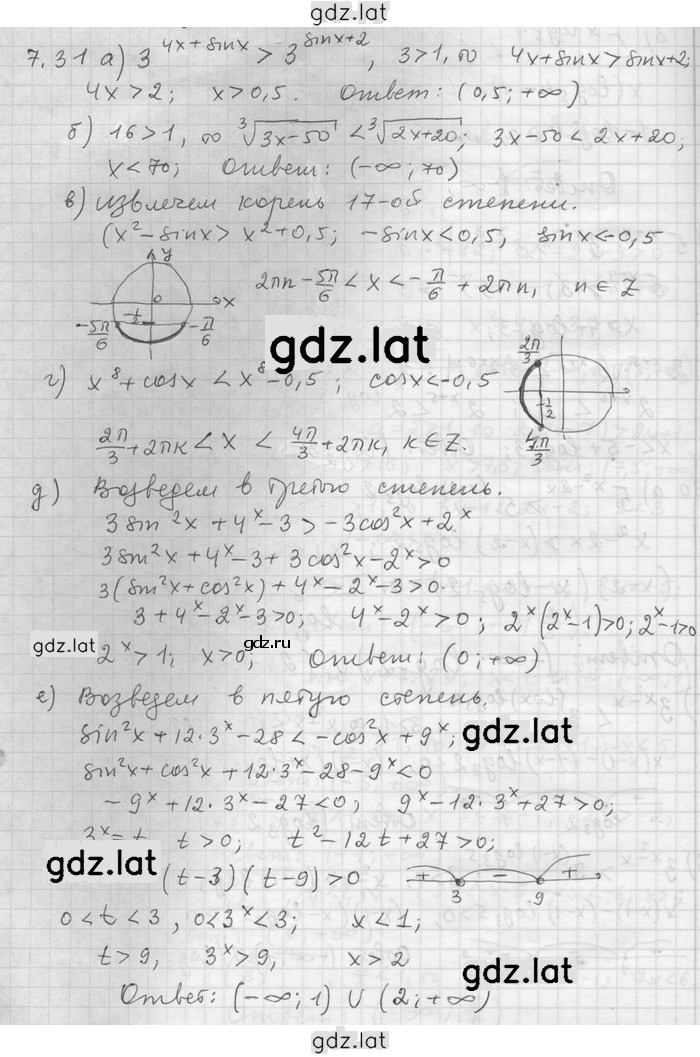 gdz.lat
7.31 а) 3^(4x+sinx) > 3^(sinx+2), 3>1, то 4x+sinx>sinx+2;
4x>2; x>0,5. Ответ: (0,5; +∞)
б) 16>1, то ∛(3x-50) < ∛(2x+20); 3x-50 < 2x+20;
x<70; Ответ: (-∞; 70)
в) извлечем корень 17-ой степени.
(x²-sinx > x²+0,5; -sinx<0,5, sinx<-0,5
y
0
x
-1/2
-5π/6
-π/6
2πn - 5π/6 < x < -π/6 + 2πn, n∈Z
gdz.lat
2π/3
-1/2
4π/3
г) x⁸+cosx < x⁸-0,5; cosx<-0,5
2π/3 + 2πк < x < 4π/3 + 2πк, к∈Z.
д) Возведем в третью степень.
3sin²x + 4ˣ-3 > -3cos²x + 2ˣ
3sin²x + 4ˣ-3 + 3cos²x - 2ˣ>0
3(sin²x+cos²x) + 4ˣ - 2ˣ - 3>0.
3+4ˣ-2ˣ-3>0; 4ˣ-2ˣ>0; 2ˣ(2ˣ-1)>0; 2ˣ-1>0
gdz.lat
gdz.ru
2ˣ>1; x>0; Ответ: (0; +∞)
е) Возведем в пятую степень.
gdz.lat
sin²x+12·3ˣ-28 < -cos²x + 9ˣ;
sin²x+cos²x+12·3ˣ-28-9ˣ<0
-9ˣ+12·3ˣ-27<0; 9ˣ-12·3ˣ+27>0;
3ˣ=t, t>0; t²-12t+27>0;
gdz.lat
(t-3)(t-9)>0
+ - +
3 9
0<t<3, 0<3ˣ<3; x<1;
t>9, 3ˣ>9, x>2
gdz.lat
Ответ: (-∞; 1) ∪ (2; +∞)
gdz.lat